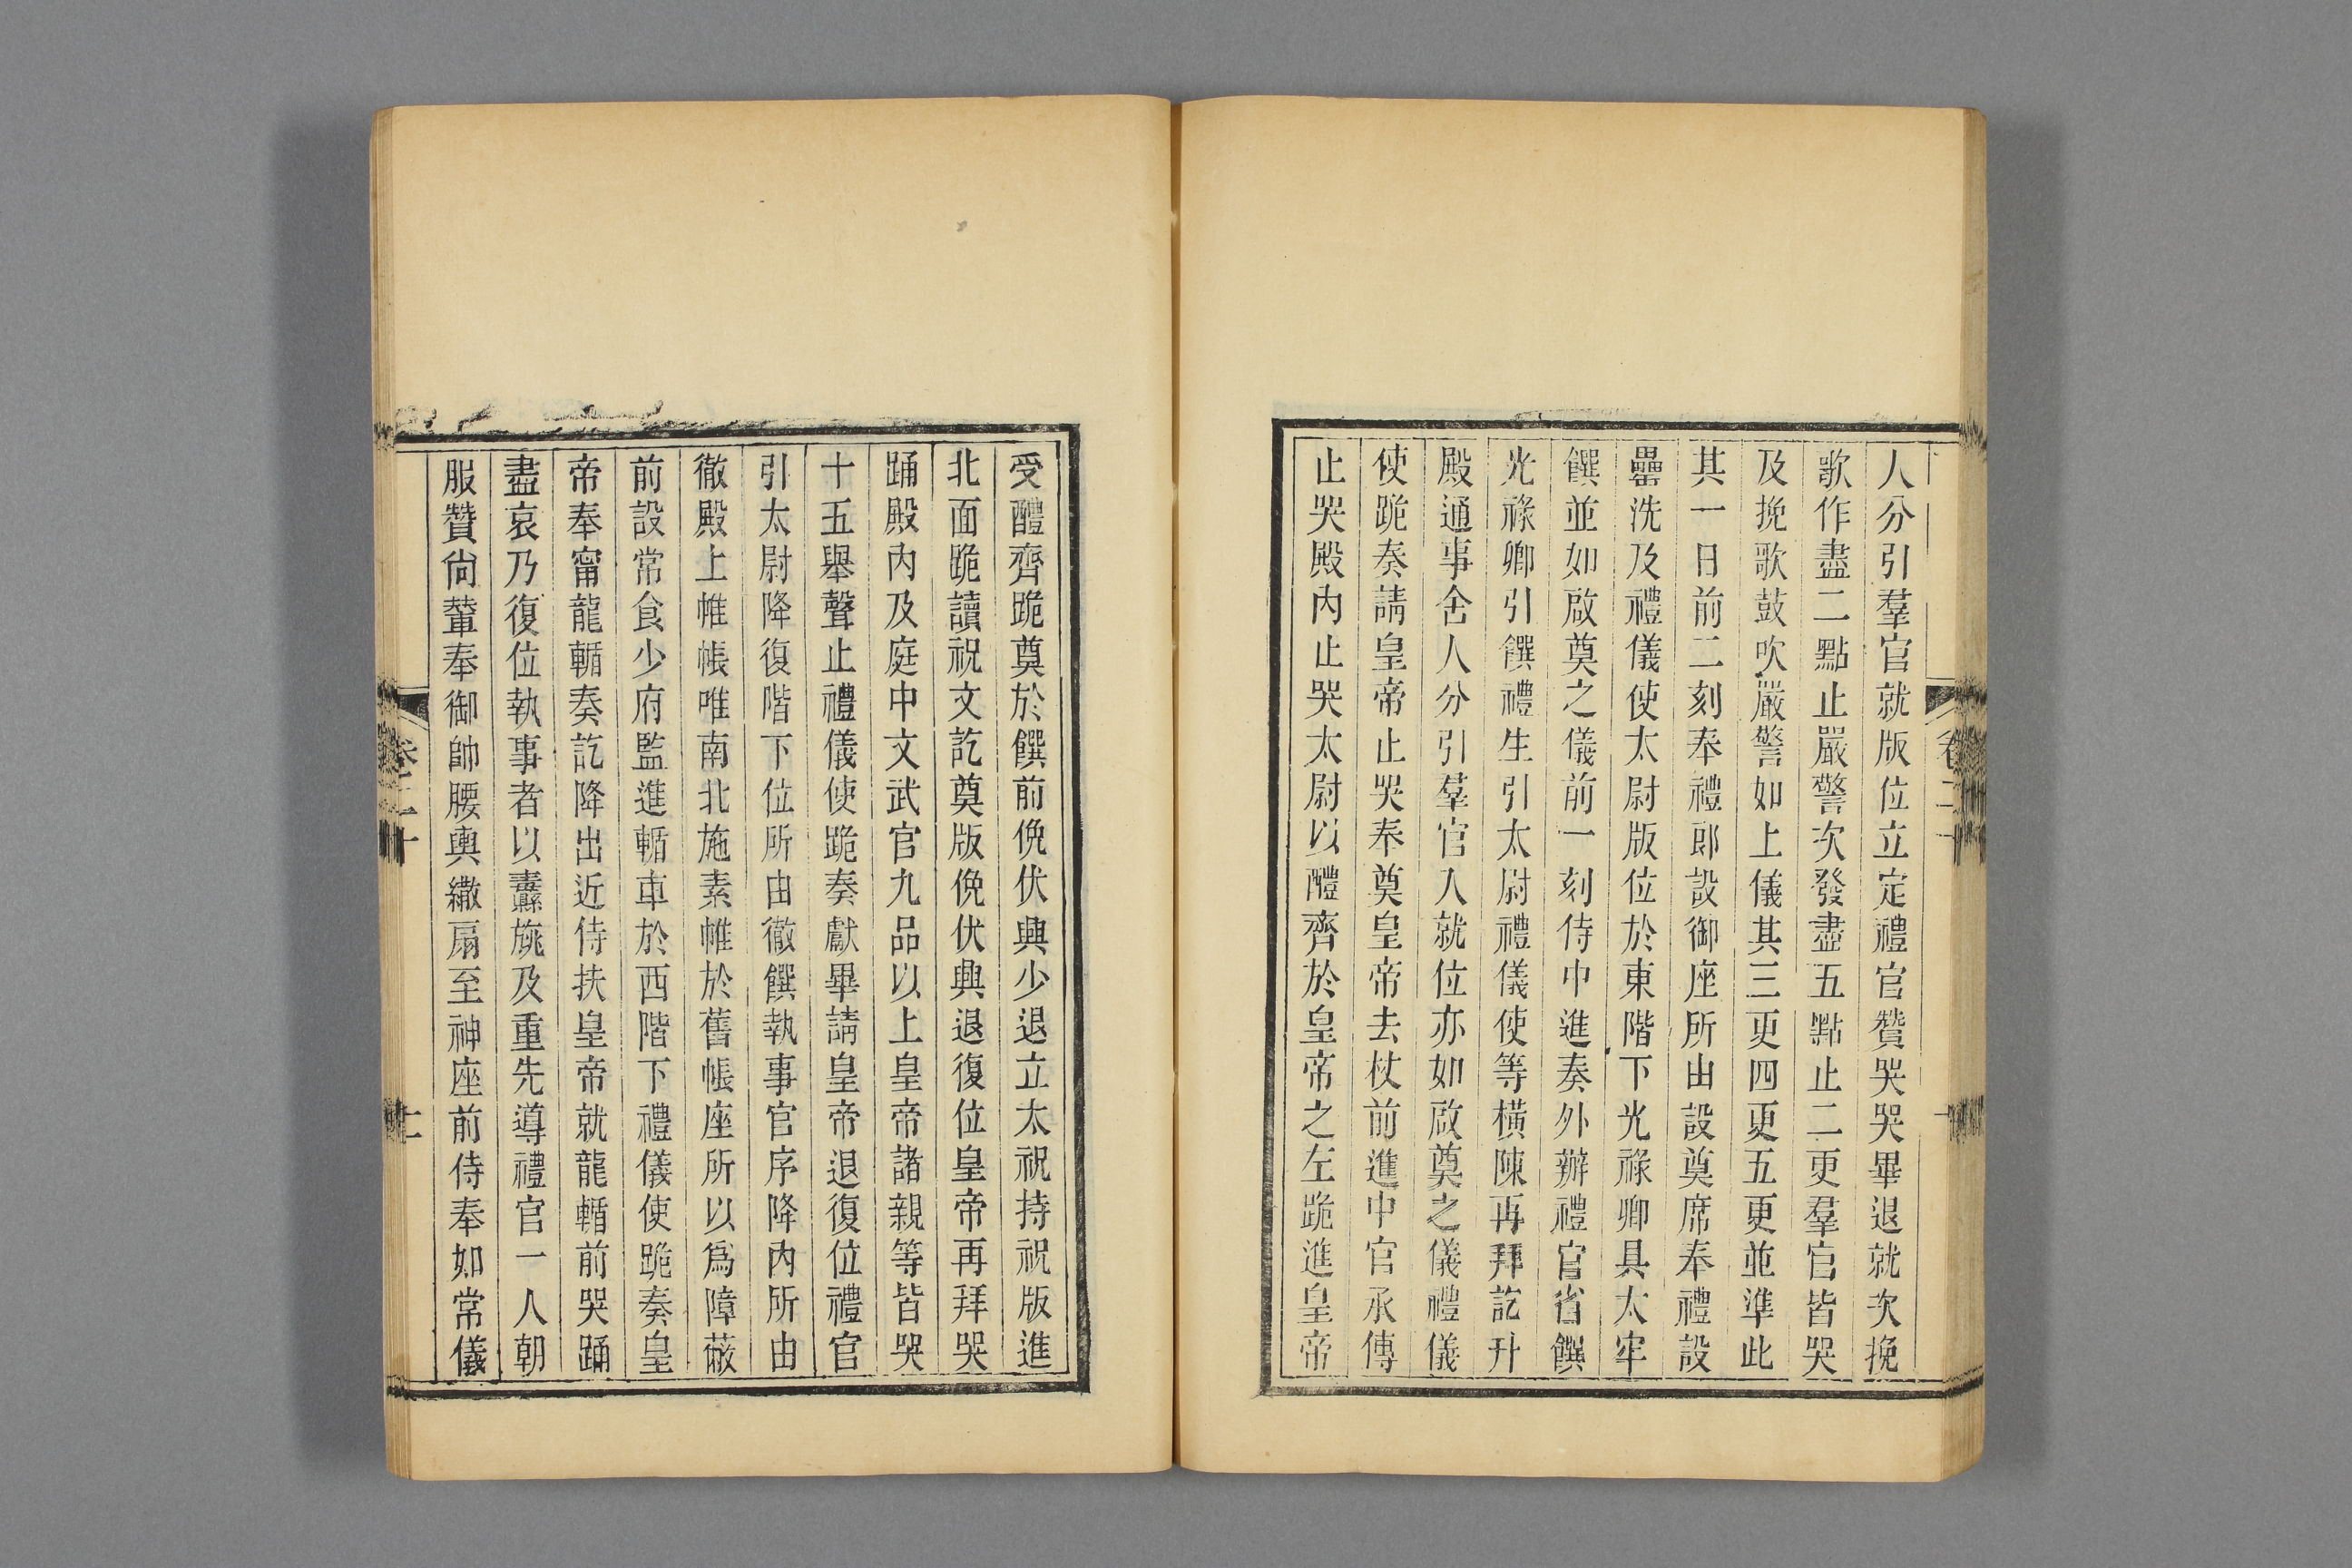 人分引羣官就版位立定禮官贊哭哭畢退就次挽
歌作盡二點止嚴警次發盡五點止二更羣官皆哭
及挽歌鼓吹嚴警如上儀其三更四更五更並準此
其一日前二刻奉禮郎設御座所由設奠席奉禮設
罍洗及禮儀使太尉版位於東階下光祿卿具太牢
饌並如啟奠之儀前一刻侍中進奏外辦禮官省饌
光祿卿引饌禮生引太尉禮儀使等橫陳再拜訖升
殿通事舍人分引羣官入就位亦如啟奠之儀禮儀
使跪奏請皇帝止哭奉奠皇帝去杖前進中官承傳
止哭殿內止哭太尉以醴齊於皇帝之左跪進皇帝
受醴齊跪奠於饌前俛伏興少退立太祝持祝版進
北面跪讀祝文訖奠版俛伏興退復位皇帝再拜哭
踊殿內及庭中文武官九品以上皇帝諸親等皆哭
十五舉聲止禮儀使跪奏獻畢請皇帝退復位禮官
引太尉降復階下位所由徹饌執事官序降內所由
徹殿上帷帳唯南北施素帷於舊帳座所以爲障蔽
前設常食少府監進輴車於西階下禮儀使跪奏皇
帝奉甯龍輴奏訖降出近侍扶皇帝就龍輴前哭踊
盡哀乃復位執事者以纛旐及重先導禮官一人朝
服贊尙輦奉御帥腰輿繖扇至神座前侍奉如常儀
卷二十
十